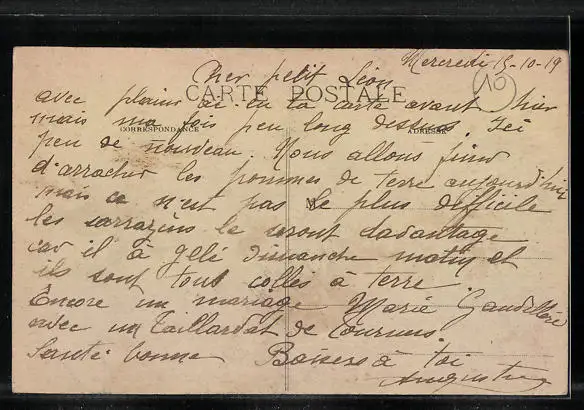 Mercredi 15-10-19
10
Cher petit Léon
CARTE POSTALE
avec plaisir ai-tu ta carte avant hier
mais ma fois peu long dessus. Ici
CORRESPONDANCE ADRESSE
peu de nouveau. Nous allons finir
d'arracher les pommes de terre aujourd'hui
mais ce n'est pas le plus difficile
les sarrazins le seront davantage
car il à gelé Dimanche matin et
ils sont tous collés à terre.
Encore un mariage Marie
avec un Taillardat de
Santé bonne Baisers à toi